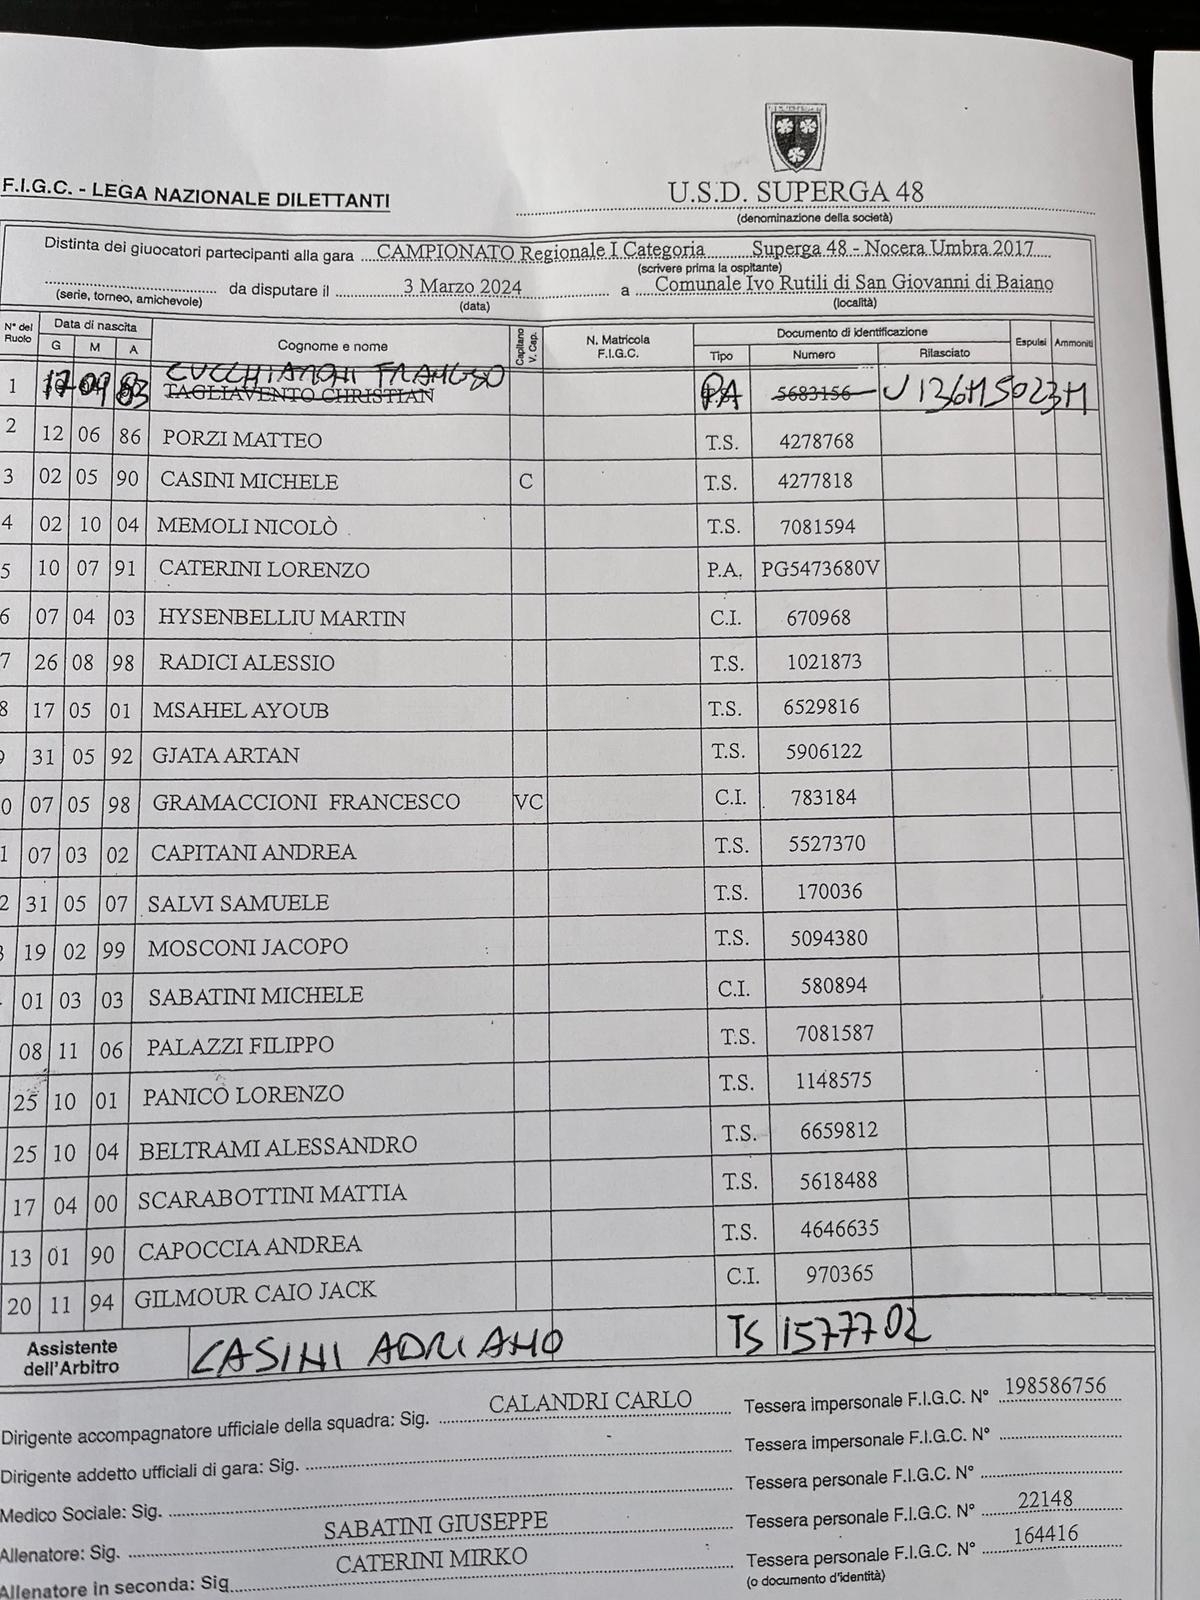 F.I.G.C. - LEGA NAZIONALE DILETTANTI
U.S.D. SUPERGA 48
(denominazione della società)
Distinta dei giuocatori partecipanti alla gara CAMPIONATO Regionale I Categoria Superga 48 - Nocera Umbra 2017
(scrivere prima la ospitante)
(serie, torneo, amichevole) da disputare il 3 Marzo 2024 a Comunale Ivo Rutili di San Giovanni di Baiano
(data) (località)
N° del Ruolo Data di nascita G M A Cognome e nome Capitano V. Cap. N. Matricola F.I.G.C. Documento di identificazione Tipo Numero Rilasciato Espulsi Ammoniti
CUCCHIARONI
1 17 09 83 TAGLIAVENTO CHRISTIAN P.A 5683156 U136M5023M
2 12 06 86 PORZI MATTEO T.S. 4278768
3 02 05 90 CASINI MICHELE C T.S. 4277818
4 02 10 04 MEMOLI NICOLÒ T.S. 7081594
5 10 07 91 CATERINI LORENZO P.A. PG5473680V
6 07 04 03 HYSENBELLIU MARTIN C.I. 670968
7 26 08 98 RADICI ALESSIO T.S. 1021873
8 17 05 01 MSAHEL AYOUB T.S. 6529816
31 05 92 GJATA ARTAN T.S. 5906122
0 07 05 98 GRAMACCIONI FRANCESCO VC C.I. 783184
1 07 03 02 CAPITANI ANDREA T.S. 5527370
2 31 05 07 SALVI SAMUELE T.S. 170036
3 19 02 99 MOSCONI JACOPO T.S. 5094380
01 03 03 SABATINI MICHELE C.I. 580894
08 11 06 PALAZZI FILIPPO T.S. 7081587
25 10 01 PANICO LORENZO T.S. 1148575
25 10 04 BELTRAMI ALESSANDRO T.S. 6659812
17 04 00 SCARABOTTINI MATTIA T.S. 5618488
13 01 90 CAPOCCIA ANDREA T.S. 4646635
20 11 94 GILMOUR CAIO JACK C.I. 970365
Assistente dell'Arbitro CASINI ADRIANO TS 1577702
Dirigente accompagnatore ufficiale della squadra: Sig. CALANDRI CARLO Tessera impersonale F.I.G.C. N° 198586756
Dirigente addetto ufficiali di gara: Sig. Tessera impersonale F.I.G.C. N°
Medico Sociale: Sig. Tessera personale F.I.G.C. N°
Allenatore: Sig. SABATINI GIUSEPPE Tessera personale F.I.G.C. N° 22148
Allenatore in seconda: Sig CATERINI MIRKO Tessera personale F.I.G.C. N° 164416
(o documento d'identità)